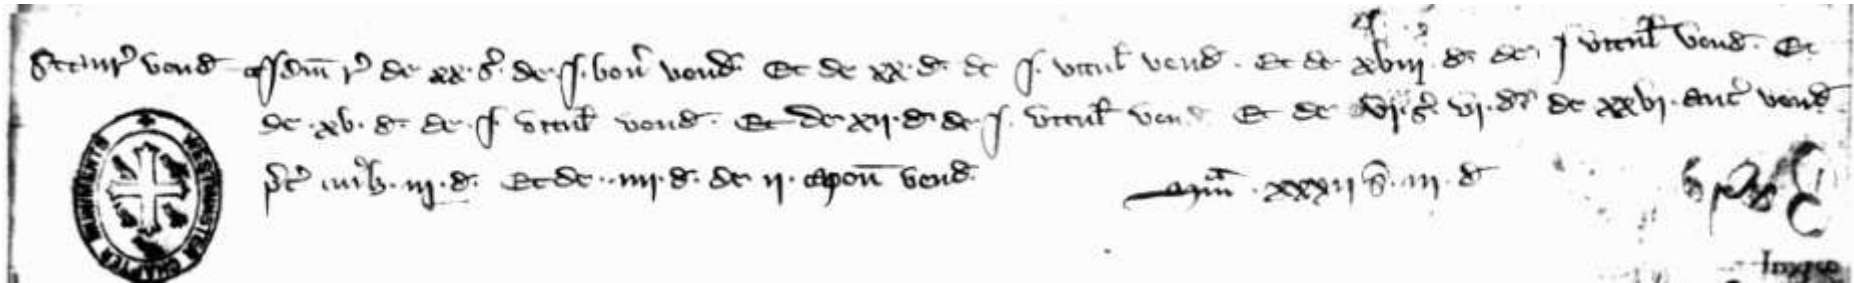 Staur' vend' Idem r' de xx. s'. de .j. bou' vend'. Et de xx. d'. de j. vitul' vend'. Et de xviij. d'. de j vitul' vend'. Et
de .xv. d'. de .j. vitul' vend'. Et de xij. d'. de j. vitul' vend' Et de vj. s'. vj. d'. de xxvj. auc' vend'
p'c' .iij. d'. Et de .iiij. d'. de ij. capon' vend' Sm' . xxxij s'. iij. d'
WESTMINSTER CHAPTER MUNIMENTS